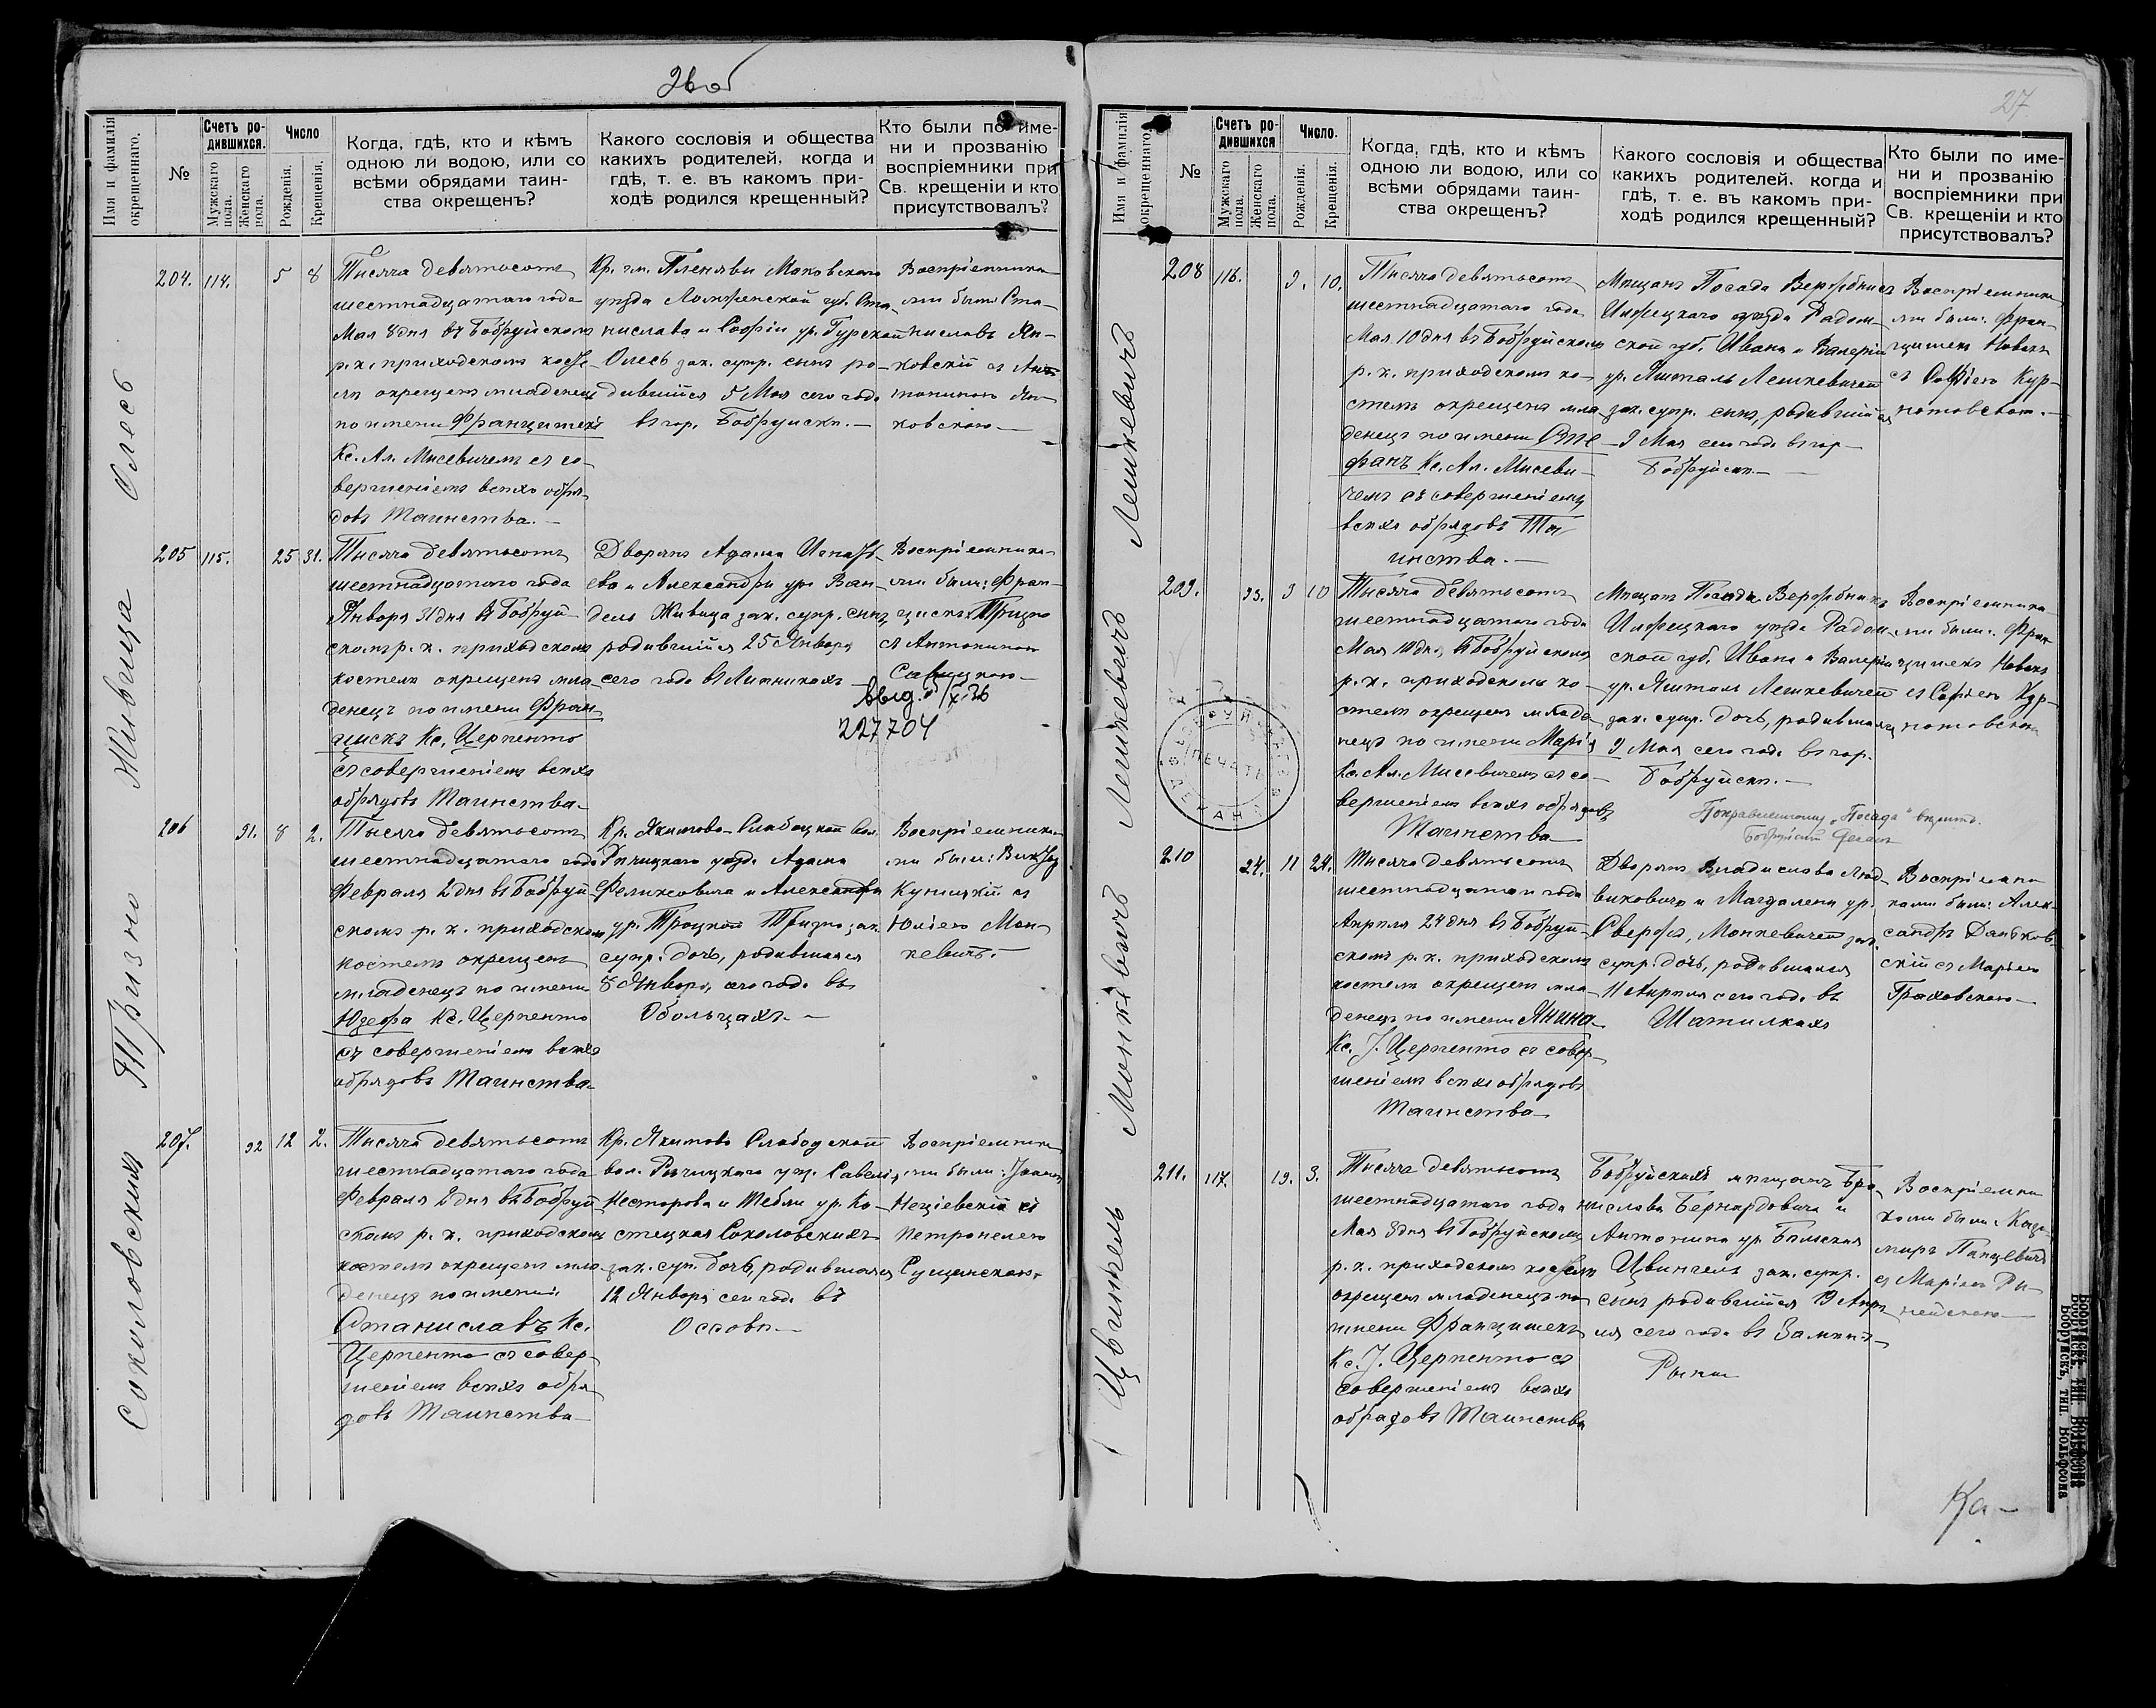 26об
Имя и фамилія окрещеннаго.
№
Счетъ ро-
дившихся.
Мужскаго пола.
Женскаго пола.
Число
Рожденія.
Крещенія.
Когда, гдѣ, кто и кѣмъ
одною ли водою, или со
всѣми обрядами таин-
ства окрещенъ?
Какого сословія и общества
какихъ родителей, когда и
гдѣ, т. е. въ какомъ при-
ходѣ родился крещенный?
Кто были по име-
ни и прозванію
воспріемники при
Св. крещеніи и кто
присутствовалъ?
Олесь
204. 114. 5 8
Тысяча девятьсотъ
шестнадцатаго года
Мая 8 дня въ Бобруйскомъ
р. к. приходскомъ косте-
лѣ окрещенъ младенецъ
по имени Францишекъ
Кс. Ал. Мисевичемъ съ со-
вершеніемъ всѣхъ обря-
довъ Таинства. —
Кр. гм. Маковскаго
уѣзда Ломженской губ. Ста-
нислава и Софіи ур. Гурской
Олесь зак. супр. сынъ ро-
дившійся 5 Мая сего года
въ гор. Бобруйскѣ. —
Воспріемника-
ми были Ста-
ниславъ Ян-
ковскій съ Ан-
тониною Ян-
ковскою —
Живица
205 115. 25 31.
Тысяча девятьсотъ
шестнадцатаго года
Января 31 дня въ Бобруй-
скомъ р. к. приходскомъ
костелѣ окрещенъ мла-
денецъ по имени Фран-
цискъ Кс. Церпенто
съ совершеніемъ всѣхъ
обрядовъ Таинства —
Дворянъ Адама Игнать-
ева и Александры ур. Ван-
дель Живица зак. супр. сынъ
родившійся 25 Января
сего года въ
Воспріемника-
ми были: Фран-
цискъ Тризно
съ Антониною
Савицкою —
выд.
227704
Тризно
206 91. 8 2.
Тысяча девятьсотъ
шестнадцатаго года
Февраля 2 дня въ Бобруй-
скомъ р. к. приходскомъ
костелѣ окрещенъ
младенецъ по имени
Юзефа Кс. Церпенто
съ совершеніемъ всѣхъ
обрядовъ Таинства —
Кр. Якимово-Слободской вол.
Рѣчицкаго уѣзда Адама
Феликсовича и Александры
ур. Троцкой Тризно зак.
супр. дочь, родившаяся
8 Января сего года въ
Обольцахъ. —
Воспріемника-
ми были:
Куницкій съ
Юліею Мон-
кевичъ. —
Соколовскихъ
207. 92 12 2.
Тысяча девятьсотъ
шестнадцатаго года
Февраля 2 дня въ Бобруй-
скомъ р. к. приходскомъ
костелѣ окрещенъ мла-
денецъ по имени
Станиславъ Кс.
Церпенто съ совер-
шеніемъ всѣхъ обря-
довъ Таинства —
Кр. Якимово Слободской
вол. Рѣчицкаго уѣз. Савелія
Несторова и Теклы ур. Ко-
стецкая Соколовскихъ
зак. суп. дочь, родившаяся
12 Января сего года въ
Оссовѣ —
Воспріемника-
ми были: Іоаннъ
Нецѣевскій съ
Петронелею
Сущинскою.
27
Имя и фамилія окрещеннаго.
№
Счетъ ро-
дившихся
Мужскаго пола.
Женскаго пола.
Число.
Рожденія.
Крещенія.
Когда, гдѣ, кто и кѣмъ
одною ли водою, или со
всѣми обрядами таин-
ства окрещенъ?
Какого сословія и общества
какихъ родителей. когда и
гдѣ, т. е. въ какомъ при-
ходѣ родился крещенный?
Кто были по име-
ни и прозванію
воспріемники при
Св. крещеніи и кто
присутствовалъ?
Лешкевичъ
208 116. 9. 10.
Тысяча девятьсотъ
шестнадцатаго года
Мая 10 дня въ Бобруйскомъ
р. к. приходскомъ ко-
стелѣ окрещенъ мла-
денецъ по имени Сте-
фанъ Кс. Ал. Мисеви-
чемъ съ совершеніемъ
всѣхъ обрядовъ Та-
инства. —
Мѣщанъ Посада Вержбникъ
Илжецкаго уѣзда Радом-
ской губ. Ивана и Валеріи
ур. Лешкевичей
зак. супр. сынъ, родившійся
9 Мая сего года въ гор
Бобруйскѣ —
Воспріемника-
ми были: Фран-
цишекъ Новакъ
съ Софіею Кур-
натовскою. —
Лешкевичъ
209. 93. 9 10
Тысяча девятьсотъ
шестнадцатаго года
Мая 10 дня въ Бобруйскомъ
р. к. приходскомъ ко-
стелѣ окрещенъ младе-
нецъ по имени Марія
Кс. Ал. Мисевичемъ съ со-
вершеніемъ всѣхъ обрядовъ
Таинства —
Мѣщанъ Посада Вержбникъ
Илжецкаго уѣзда Радом-
ской губ. Ивана и Валеріи
ур. Лешкевичей
зак. супр. дочь, родившаяся
9 Мая сего года въ гор.
Бобруйскѣ. —
Воспріемника-
ми были: Фран-
цишекъ Новакъ
съ Софіею Кур-
натовскою
Поправленному „Посада“ вѣрить.
Бобруйскій Деканъ
ПЕЧАТЬ
Монкевичъ
210 94. 11 24.
Тысяча девятьсотъ
шестнадцатаго года
Апрѣля 24 дня въ Бобруй-
скомъ р. к. приходскомъ
костелѣ окрещенъ мла-
денецъ по имени Янина
Кс. J. Церпенто съ совер-
шеніемъ всѣхъ обрядовъ
Таинства —
Дворянъ Владислава Люд-
виковича и Магдалены ур.
Монкевичей зак.
супр. дочь, родившаяся
11 Апрѣля сего года въ
Шатилкахъ
Воспріемни-
ками были: Алек-
сандръ Даньков-
скій съ Маріею
Граховскою —
Цвингель
211. 117. 19. 3.
Тысяча девятьсотъ
шестнадцатаго года
Мая 3 дня въ Бобруйскомъ
р. к. приходскомъ костелѣ
окрещенъ младенецъ по
имени Францишекъ
Кс. J. Церпенто съ
совершеніемъ всѣхъ
обрядовъ Таинства
Бобруйскихъ мѣщанъ Бро-
нислава Бернардовича и
Антонины ур. Бѣльская
Цвингель зак. супр.
сынъ родившійся 19 Апрѣ-
ля сего года въ
Воспріемни-
ками были: Кази-
миръ Панцевичъ
съ Маріею
Ка-
Бобруйскъ, тип. Вольфсона